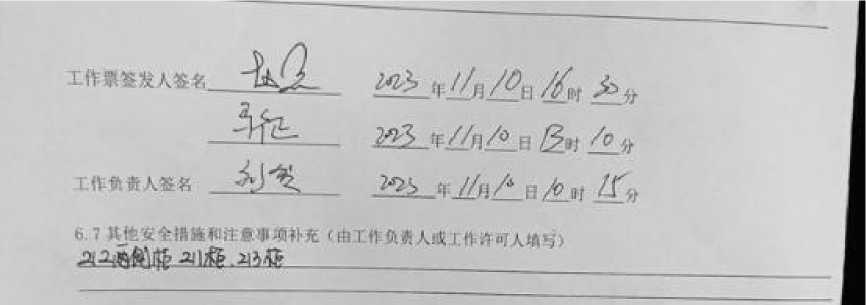 工作票签发人签名 2023年11月10日16时30分
2023年11月10日13时10分
工作负责人签名 2023年11月10日10时15分
6.7 其他安全措施和注意事项补充(由工作负责人或工作许可人填写)
212两侧柜 211柜、213柜